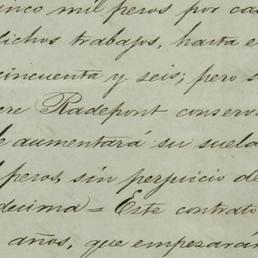 inco mil pesos por ca
dichos trabajos, hasta e
cincuenta y seis; pero s
ere Radepont conserv
e aumentará su suela
pesos, sin perjuicio de
decima = Este contrato
años, que empezarán